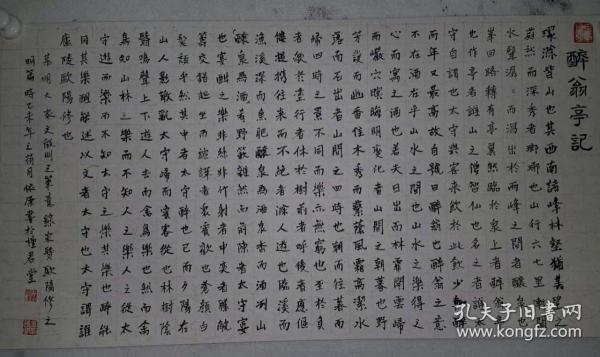 醉翁亭記
環滁皆山也其西南諸峰林壑猶美望之
蔚然而深秀者瑯琊也山行六七里漸聞
水聲潺潺而瀉出於兩峰之間者釀泉也
峯回路轉有亭翼然臨於泉上者醉翁亭
也作亭者誰山之僧智仙也名之者誰太
守自謂也太守與客來飲於此飲少輒醉
而年又最高故自號曰醉翁也醉翁之意
不在酒在乎山水之間也山水之樂得之
心而寓之酒也若夫日出而林霏開雲歸
而巖穴暝晦明變化者山間之朝暮也野
芳發而幽香佳木秀而繁蔭風霜高潔水
落而石出者山間之四時也朝而往暮而
歸四時之景不同而樂亦無窮也至於負
者歌於塗行者休於樹前者呼後者應傴
僂提攜往來而不絕者滁人遊也臨溪而
漁溪深而魚肥釀泉為酒泉香而酒冽山
野蔌雜然而前陳者太守宴
也宴酣之樂非絲非竹射者中奕者勝觥
籌交錯起坐而諠譁者眾賓歡也蒼顏白
髮頹乎其中者太守醉也已而夕陽在
山人影散亂太守歸而賓客從也樹林陰
翳鳴聲上下遊人去而禽鳥樂也然而禽
鳥知山林之樂而不知人之樂人之從太
守遊而樂而不知太守之樂其樂也醉能
同其樂醒能述以文者太守也太守謂誰
廬陵歐陽修也
明人家文徵明之筆意錄宋賢歐陽修之
時乙未年之荷月
孔夫子旧书网